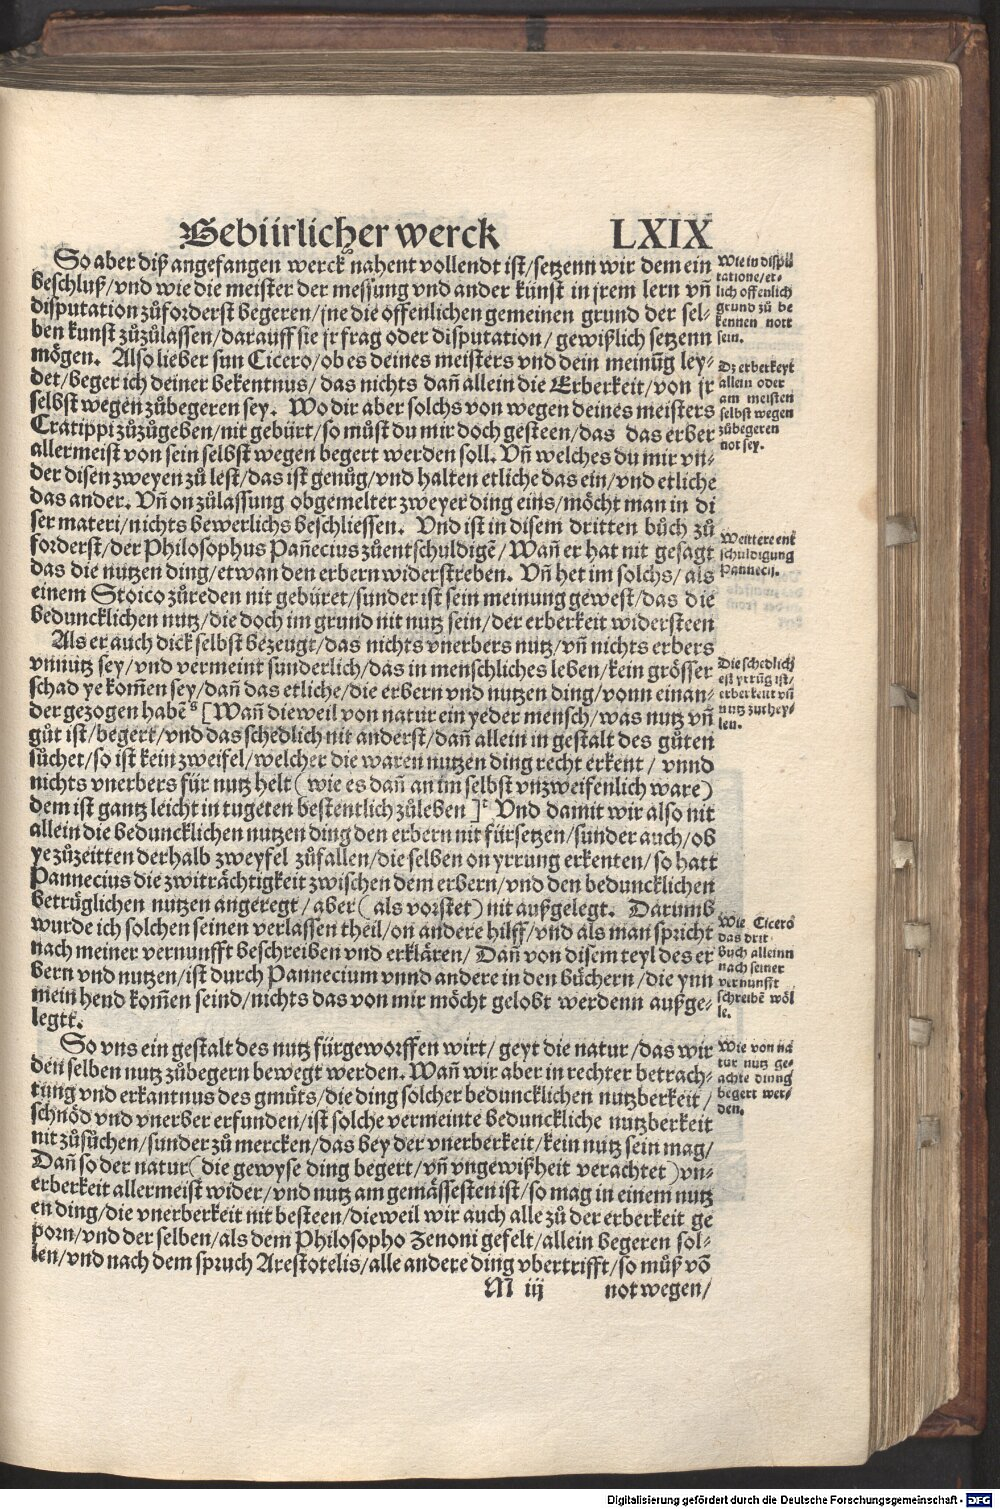 Gebürlicher werck LXIX
So aber diß angefangen werck nahent vollendt ist/setzenn wir dem ein
beschluß/vnd wie die meister der messung vnd ander künst in jrem lern vñ
disputation zůforderst begeren/jne die offenlichen gemeinen grund der sel-
ben kunst zůzůlassen/darauff sie jr frag oder disputation/gewißlich setzenn
mögen. Also lieber sun Cicero/ob es deines meisters vnd dein meinũg ley-
det/beger ich deiner bekentnus/das nichts dañ allein die Erberkeit/von jr
selbst wegen zůbegeren sey. Wo dir aber solchs von wegen deines meisters
Cratippi zůzůgeben/nit gebürt/so můst du mir doch gesteen/das das erber
allermeist von sein selbst wegen begert werden soll. Vñ welches du mir vn-
der disen zweyen zů lest/das ist genůg/vnd halten etliche das ein/vnd etliche
das ander. Vñ on zůlassung obgemelter zweyer ding eins/möcht man in di
ser materi/nichts bewerlichs beschliessen. Vnd ist in disem dritten bůch zů
forderst/der Philosophus Pañecius zůentschuldigẽ/Wañ er hat nit gesagt
das die nutzen ding/etwan den erbern widerstreben. Vñ het im solchs/als
einem Stoico zůreden nit gebüret/sunder ist sein meinung gewest/das die
beduncklichen nutz/die doch im grund nit nutz sein/der erberkeit widersteen
Als er auch dick selbst bezeugt/das nichts vnerbers nutz/vñ nichts erbers
vnnutz sey/vnd vermeint sunderlich/das in menschliches leben/kein grösser
schad ye kom̃en sey/dañ das etliche/die erbern vnd nutzen ding/vonn einan-
der gezogen habẽ s [Wañ dieweil von natur ein yeder mensch/was nutz vñ
gůt ist/begert/vnd das schedlich nit anderst/dañ allein in gestalt des gůten
sůchet/so ist kein zweifel/welcher die waren nutzen ding recht erkent/vnnd
nichts vnerbers für nutz helt (wie es dañ an im selbst vnzweifenlich ware)
dem ist gantz leicht in tugeten bestentlich zůleben ]t Vnd damit wir also nit
allein die beduncklichen nutzen ding den erbern nit fürsetzen/sunder auch/ob
ye zůzeitten derhalb zweyfel zůfallen/die selben on yrrung erkenten/so hatt
Pannecius die zwiträchtigkeit zwischen dem erbern/vnd den beduncklichen
betrüglichen nutzen angeregt/aber (als vorstet) nit außgelegt. Darumb
wurde ich solchen seinen verlassen theil/on andere hilff/vnd als man spricht
nach meiner vernunfft beschreiben vnd erklären/Dañ von disem teyl des er
bern vnd nutzen/ist durch Pannecium vnnd andere in den büchern/die ynn
mein hend kom̃en seind/nichts das von mir möcht gelobt werdenn außge-
legtt.
So vns ein gestalt des nutz fürgeworffen wirt/geyt die natur/das wir
den selben nutz zůbegern bewegt werden. Wañ wir aber in rechter betrach-
tung vnd erkantnus des gmüts/die ding solcher beduncklichen nutzberkeit/
schnöd vnd vnerber erfunden/ist solche vermeinte bedunckliche nutzberkeit
nit zůsůchen/sunder zů mercken/das bey der vnerberkeit/kein nutz sein mag/
Dañ so der natur (die gewyse ding begert/vñ vngewißheit verachtet) vn-
erberkeit allermeist wider/vnd nutz am gemässesten ist/so mag in einem nutz
en ding/die vnerberkeit nit besteen/dieweil wir auch alle zů der erberkeit ge
porn/vnd der selben/als dem Philosopho Zenoni gefelt/allein begeren sol-
len/vnd nach dem spruch Arestotelis/alle andere ding vbertrifft/so můß võ
M iij not wegen/
Wie in dispu
tatione/et-
lich offenlich
grund zů be
kennen nott
sein.
Dz erberkeyt
allein oder
am meisten
selbst wegen
zůbegeren
not sey.
Weittere ent
schuldigung
Pannecij.
Die schedlich
est yrrũg ist/
erberkeit vñ
nutz zutey-
len.
Wie Cicero
das drit
Buch alleinn
nach seiner
vernunfft
schreibẽ wöl
le.
Wie von na
tur nutz ge-
achte dinng
begert wer-
den.
Digitalisierung gefördert durch die Deutsche Forschungsgemeinschaft - DFG